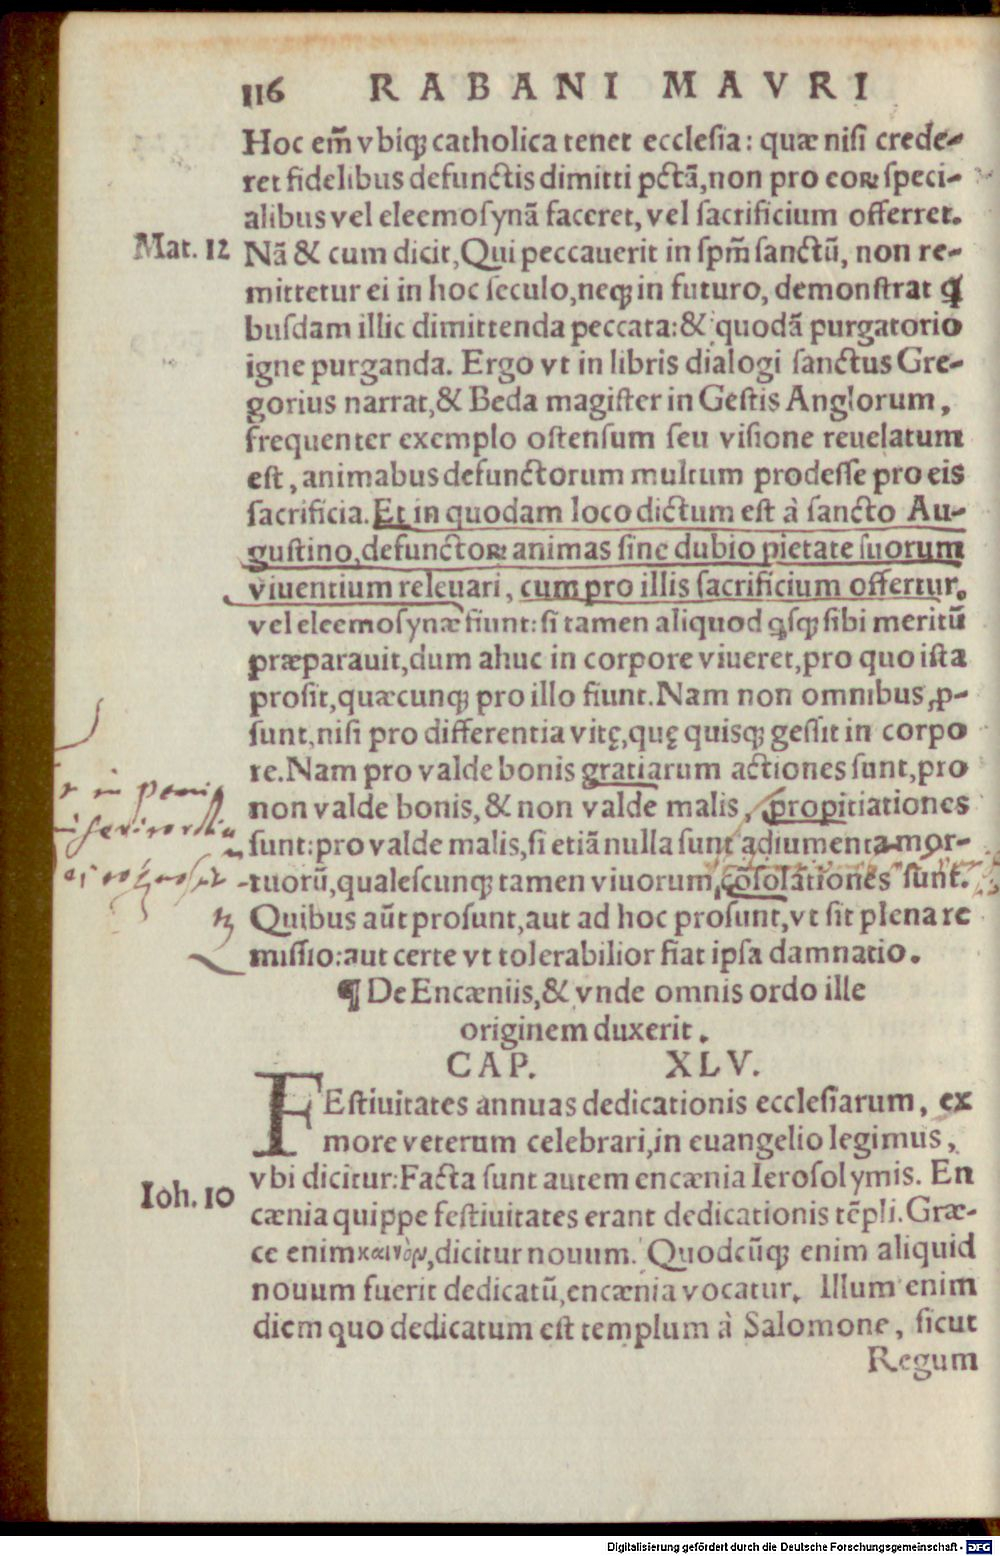 116 RABANI MAVRI
Hoc em̃ vbiqꝫ catholica tenet ecclesia: quæ nisi crede-
ret fidelibus defunctis dimitti pctã, non pro eoꝝ speci-
alibus vel eleemosynã faceret, vel sacrificium offerret.
Mat. 12
Nã & cum dicit, Qui peccauerit in spm̃ sanctũ, non re-
mittetur ei in hoc seculo, neqꝫ in futuro, demonstrat ꝗ
busdam illic dimittenda peccata: & quodã purgatorio
igne purganda. Ergo vt in libris dialogi sanctus Gre-
gorius narrat, & Beda magister in Gestis Anglorum,
frequenter exemplo ostensum seu visione reuelatum
est, animabus defunctorum multum prodesse pro eis
sacrificia. Et in quodam loco dictum est à sancto Au-
gustino, defunctoꝝ animas sine dubio pietate suorum
viuentium releuari, cum pro illis sacrificium offertur,
vel eleemosynæ fiunt: si tamen aliquod ꝗsqꝫ sibi meritũ
præparauit, dum ahuc in corpore viueret, pro quo ista
prosit, quæcunqꝫ pro illo fiunt. Nam non omnibus ꝓ-
sunt, nisi pro differentia vitę, quę quisqꝫ gessit in corpo
re. Nam pro valde bonis gratiarum actiones sunt, pro
non valde bonis, & non valde malis, propitiationes
sunt: pro valde malis, si etiã nulla sunt adiumenta mor-
tuorũ, qualescunqꝫ tamen viuorum, cõsolationes sunt.
Quibus aũt prosunt, aut ad hoc prosunt, vt sit plena re
missio: aut certe vt tolerabilior fiat ipsa damnatio.
¶ De Encæniis, & vnde omnis ordo ille
originem duxerit.
CAP. XLV.
FEstiuitates annuas dedicationis ecclesiarum, ex
more veterum celebrari, in euangelio legimus,
Ioh. 10
vbi dicitur: Facta sunt autem encænia Ierosolymis. En
cænia quippe festiuitates erant dedicationis tẽpli. Græ-
ce enim καινὸν, dicitur nouum. Quodcũqꝫ enim aliquid
nouum fuerit dedicatũ, encænia vocatur. Illum enim
diem quo dedicatum est templum à Salomone, sicut
Regum
Digitalisierung gefördert durch die Deutsche Forschungsgemeinschaft - DFG